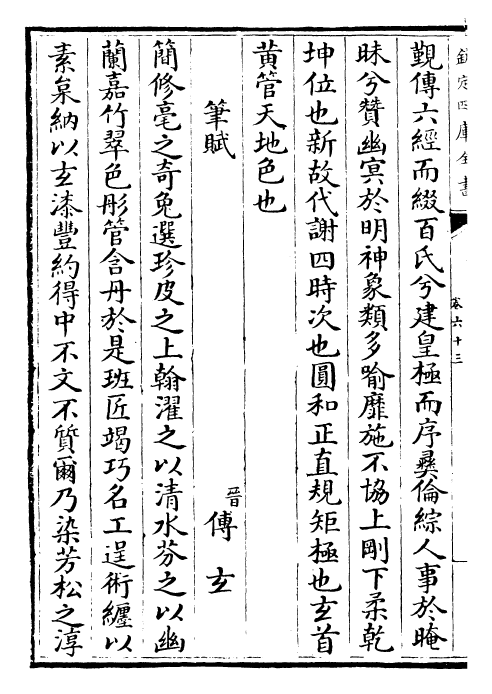 欽定四庫全書
卷六十三
覲傳六經而綴百氏兮建皇極而序彛倫綜人事於晻
昧兮贊幽冥於明神象類多喻靡施不協上剛下柔乾
坤位也新故代謝四時次也圓和正直規矩極也玄首
黄管天地色也
筆賦
晉 傅玄
簡修毫之奇兔選珍皮之上翰濯之以清水芬之以幽
蘭嘉竹翠色彤管含丹於是班匠竭巧名工逞術纏以
素枲納以玄漆豐約得中不文不質爾乃染芳松之淳